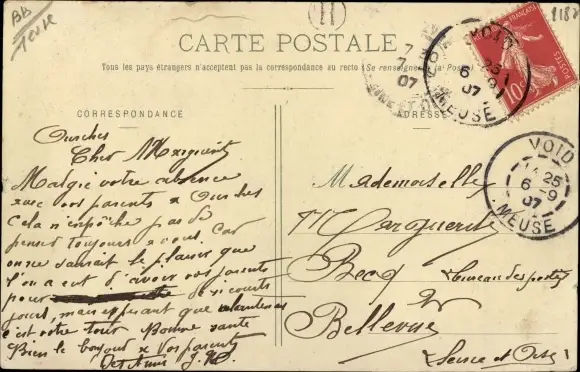 BB
Teuse
H
2187
CARTE POSTALE
Tous les pays étrangers n'acceptent pas la correspondance au recto (Se renseigner à la Poste)
CORRESPONDANCE
ADRESSE
7
7
07
VOID
25
6 9
07
MEUSE
10
VOID
25
6 9
07
MEUSE
Ourches
Cher Marguerit
Malgré votre absence
avec vos parents a Ourches
cela n'empêche pas de
penser toujours a vous Car
on ne saurait le plaisir que
l'on a eut d'avoir vos parents
pour de si courts
jours, mais esperant que maintenant
c'est votre tour Bonne sante
Bien le bonjour a Vos parents
Des Amis J.
Mademoiselle
Marguerite
Becq
Bureau des postes
Bellevue
Seine et Oise